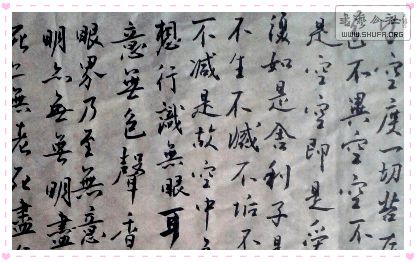 空度一切苦
色不異空空不
是空空即是受
復如是舍利子是
不生不滅不垢不
不减是故空中
想行識無眼耳
意無色聲香
眼界乃至無意
明亦無無明盡
死亦無老死盡
WWW.SHUFA.ORG